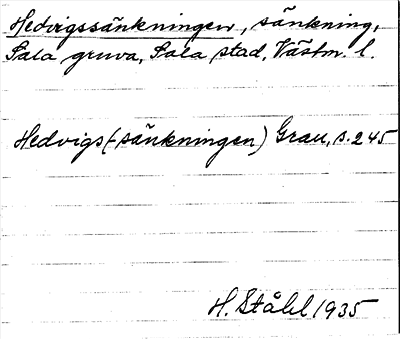 Hedvigssänkningen, sänkning,
Sala gruva, Sala stad, Västm. l.
Hedvigs(-sänkningen) Grau, s. 245
H. Ståhl 1935